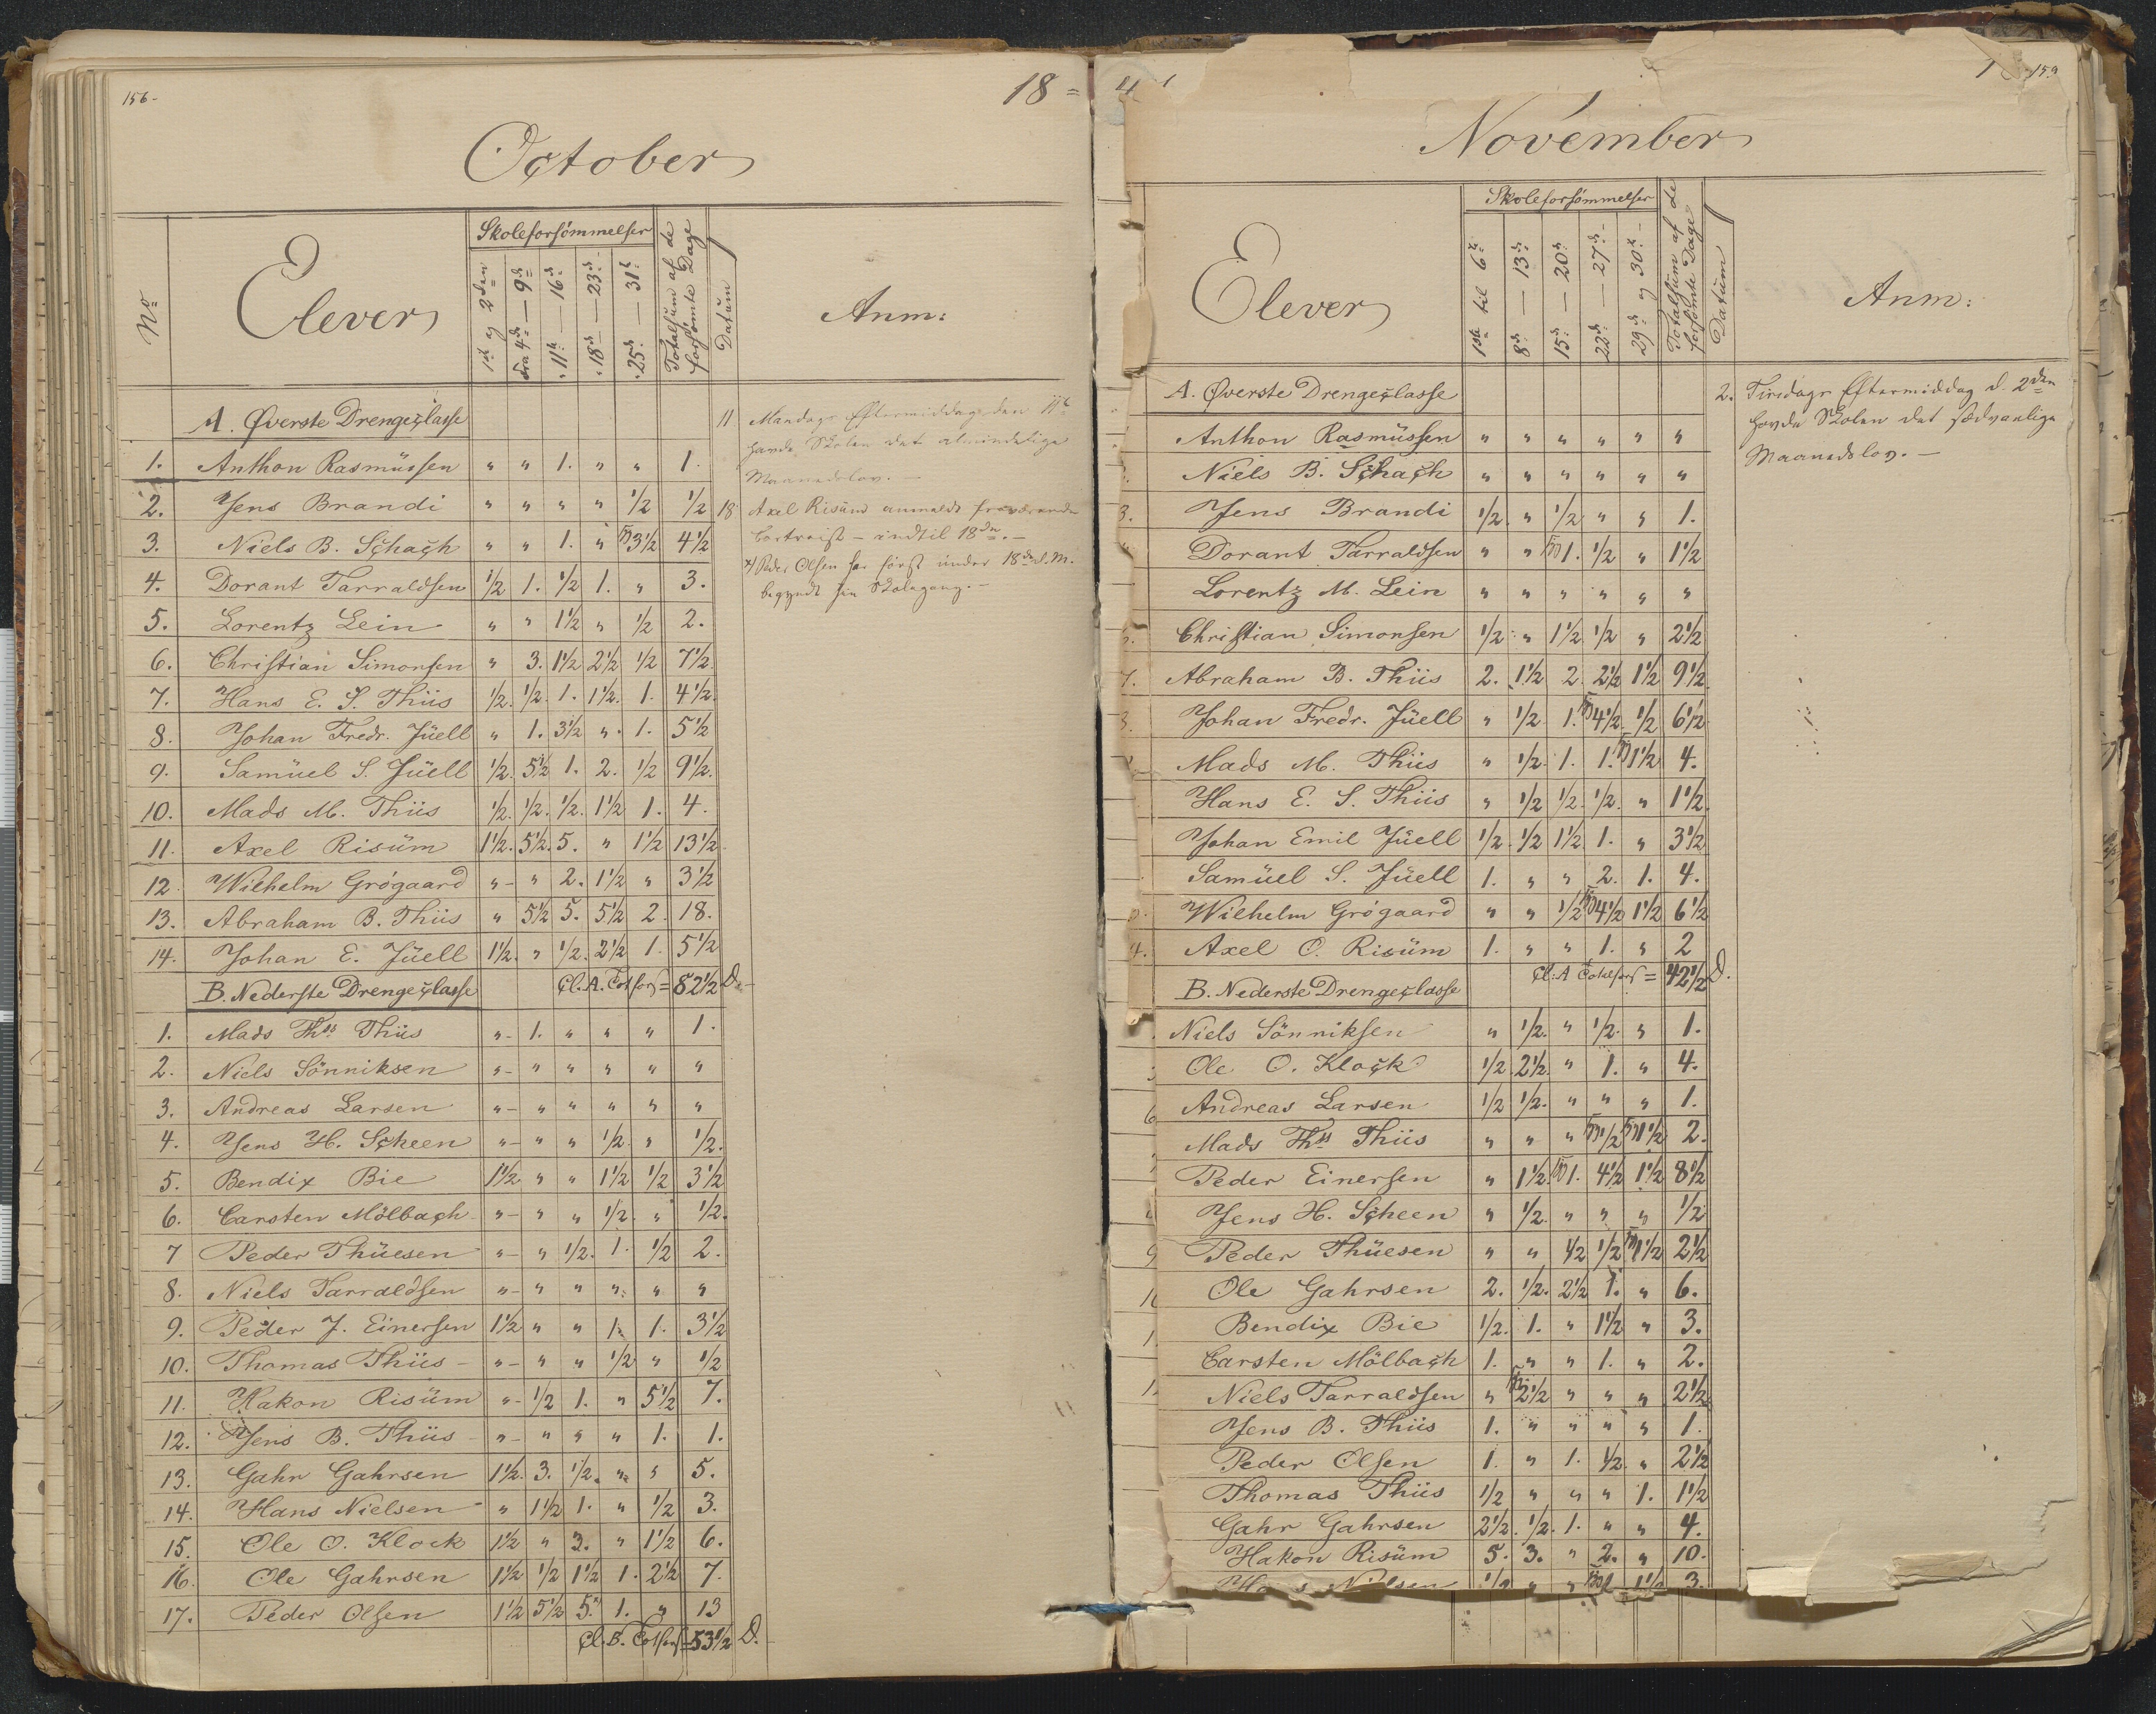 156-
18 =
October
No
Elever
Skoleforsömmelser
1ste og 2den
fra 4de — 9de
" 11te — 16de
" 18de — 23de
" 25de — 31te
Totalsum af de forsömte Dage
Datum
Anm:
A. Øverste Drengeclasse
1. Anthon Rasmüssen " " 1. " " 1.
2. Jens Brandi " " " " 1/2 1/2
3. Niels B. Schach " " 1. " 3 1/2 4 1/2
4. Dorant Tarraldsen 1/2 1. 1/2 1. " 3.
5. Lorentz Lein " " 1 1/2 " 1/2 2.
6. Christian Simonsen " 3. 1 1/2 2 1/2 1/2 7 1/2
7. Hans E. S. Thiis 1/2. 1/2. 1. 1 1/2. 1. 4 1/2.
8. Johan Fredr. Jüell " 1. 3 1/2 " 1. 5 1/2
9. Samüel S. Jüell 1/2. 5 1/2 1. 2. 1/2 9 1/2.
10. Mads M. Thiis 1/2. 1/2. 1/2. 1 1/2 1. 4.
11. Axel Risüm 1 1/2. 5 1/2. 5. " 1 1/2 13 1/2
12. Wilhelm Grógaard " " 2. 1 1/2 " 3 1/2
13. Abraham B. Thiis " 5 1/2 5. 5 1/2 2. 18.
14. Johan E. Jüell 1 1/2. " 1/2. 2 1/2 1. 5 1/2
Cl. A. Totfors = 82 1/2 D.
B. Nederste Drengeclasse
1. Mads Ths Thiis "- 1. " " " 1.
2. Niels Sönniksen "- " " " " "
3. Andreas Larsen "- " " " " "
4. Jens H. Scheen "- " " 1/2. " 1/2.
5. Bendix Bie 1 1/2 " " 1 1/2 1/2 3 1/2
6. Carsten Mölbach "- " " 1/2. " 1/2.
7 Peder Thüesen "- " 1/2. 1. 1/2 2.
8. Niels Tarraldsen "- " " " " "
9. Peder J. Einersen 1 1/2 " " 1. 1. 3 1/2
10. Thomas Thiis "- " " 1/2 " 1/2
11. Hakon Risüm "- 1/2 1. " 5 1/2 7.
12. Jens B. Thiis "- " " " 1. 1.
13. Gahr Gahrsen 1 1/2. 3. 1/2. " " 5.
14. Hans Nielsen " 1 1/2 1. " 1/2 3.
15. Ole O. Klock 1 1/2 " 3. " 1 1/2 6.
16. Ole Gahrsen 1 1/2 1/2 1 1/2 1. 2 1/2 7.
17. Peder Olsen 1 1/2 5 1/2 5. 1. " 13
Cl. B. Totfors = 53 1/2 D.
11 Mandags Eftermiddag den 11te
havde Skolen det almindelige
Maanedslov. —
18 Axel Risüm anmeldt fraværende
bortreist — indtil 18de. —
x) Peder Olsen har först under 18de d. M.
begyndt sin Skolegang. —
159
November
Elever
Skoleforsömmelser
1ste til 6te
8de — 13de
15de — 20de
22de — 27de
29de og 30te
Totalsum af de forsömte Dage
Datum
Anm:
A. Øverste Drengeclasse
Anthon Rasmüssen " " " " " "
Niels B. Schach " " " " " "
3. Jens Brandi 1/2 " 1/2 " " 1.
Dorant Tarraldsen " " 1. 1/2 " 1 1/2
Lorentz M. Lein " " " " " "
Christian Simonsen 1/2 " 1 1/2 1/2 " 2 1/2
7. Abraham B. Thiis 2. 1 1/2 2. 2 1/2 1 1/2 9 1/2.
Johan Fredr. Jüell " 1/2 1. 4 1/2 1/2 6 1/2
Mads M. Thiis " 1/2. 1. 1. 1 1/2 4.
Hans E. S. Thiis " 1/2 1/2. 1/2. " 1 1/2.
Johan Emil Jüell 1/2. 1/2 1 1/2 1. " 3 1/2
Samüel S. Jüell 1. " " 2. 1. 4.
Wilhelm Grógaard " " 1/2 4 1/2 1 1/2 6 1/2
4. Axel O. Risüm 1. " " 1. " 2
Cl: A Totalfors = 42 1/2 D.
B. Nederste Drengeclasse
Niels Sönniksen " 1/2. " 1/2. " 1.
Ole O. Klock 1/2. 2 1/2 " 1. " 4.
6 Andreas Larsen 1/2 1/2. " " " 1.
Mads Ths Thiis " " " 1/2 1 1/2 2.
Peder Einersen " 1 1/2 1. 4 1/2 1 1/2 8 1/2
Jens H. Scheen " 1/2. " " " 1/2
9 Peder Thüesen " " 1/2 1/2 1 1/2 2 1/2
Ole Gahrsen 2. 1/2. 2 1/2 1. " 6.
Bendix Bie 1/2. 1. " 1 1/2 " 3.
Carsten Mölbach 1. " " 1. " 2.
Niels Tarraldsen " 2 1/2 " " " 2 1/2
Jens B. Thiis 1. " " " " 1.
Peder Olsen 1. " 1. 1/2. " 2 1/2
Thomas Thiis 1/2 " " " 1. 1 1/2
Gahr Gahrsen 2 1/2. 1/2. 1. " " 4.
Hakon Risüm 5. 3. " 2. " 10.
Nielsen 1/2 " " 1 1/2 3.
2. Tirsdags Eftermiddag d. 2den
havde Skolen det sedvanlige
Maanedslov. —